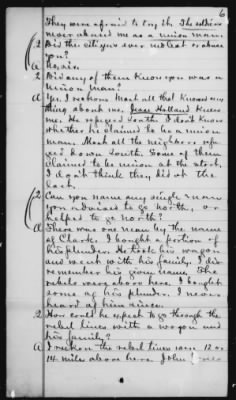 6
They were afraid to try it. The soldiers
never abused me as a union man.
Q Did the citizens ever molest or abuse
you?
A No, sir.
Q Did any of them know you was a
union man?
A Yes I reckon. Most all that knowed any
thing about me. Isaac Holland knew
me. He refugeed South. I don't know
whether he claimed to be a union
man. Most all the neighbors refu-
geed down South. Some of them
claimed to be union at the start.
I don't think they did at the
last.
Q Can you name any single man
you advised to go north, or
helped to go north?
A There was one man by the name
of Clark. I bought a portion of
his plunder. He took his wagon
and went with his family. I dis-
remember his given name. The
rebels were above here. I bought
some of his plunder. I never
heard of him since.
Q How could he expect to go through the
rebel lines with a wagon and
his family?
A I reckon the rebel lines were 12 or
14 miles above here. John